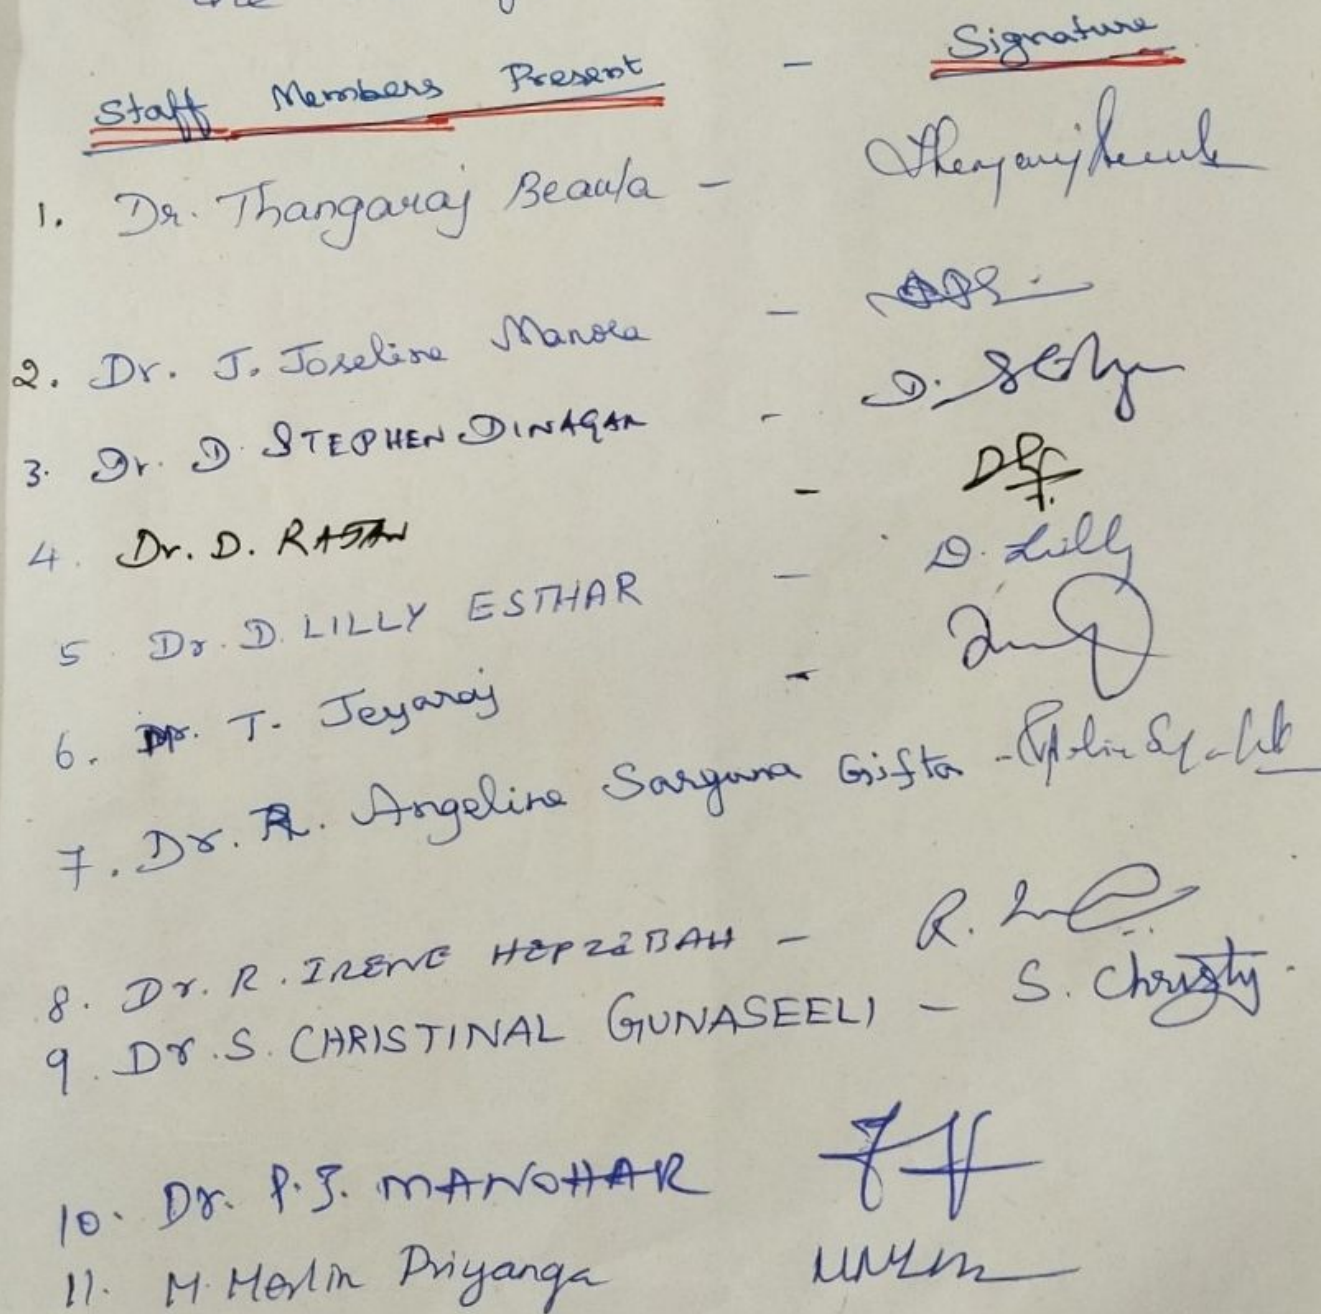 the
Staff Members Present - Signature
1. Dr. Thangaraj Beaula -
2. Dr. J. Joseline Manora -
3. Dr. D. STEPHEN DINAGAR -
4. Dr. D. RAJAN -
5. Dr. D. LILLY ESTHAR - D. Lilly
6. Dr. T. Jeyaraj -
7. Dr. R. Angeline Sarguna Gifta -
8. Dr. R. IRENE HEPZIBAH - R.
9. Dr. S. CHRISTINAL GUNASEELI - S. Christy
10. Dr. P. J. MANOHAR
11. M. Merlin Priyanga